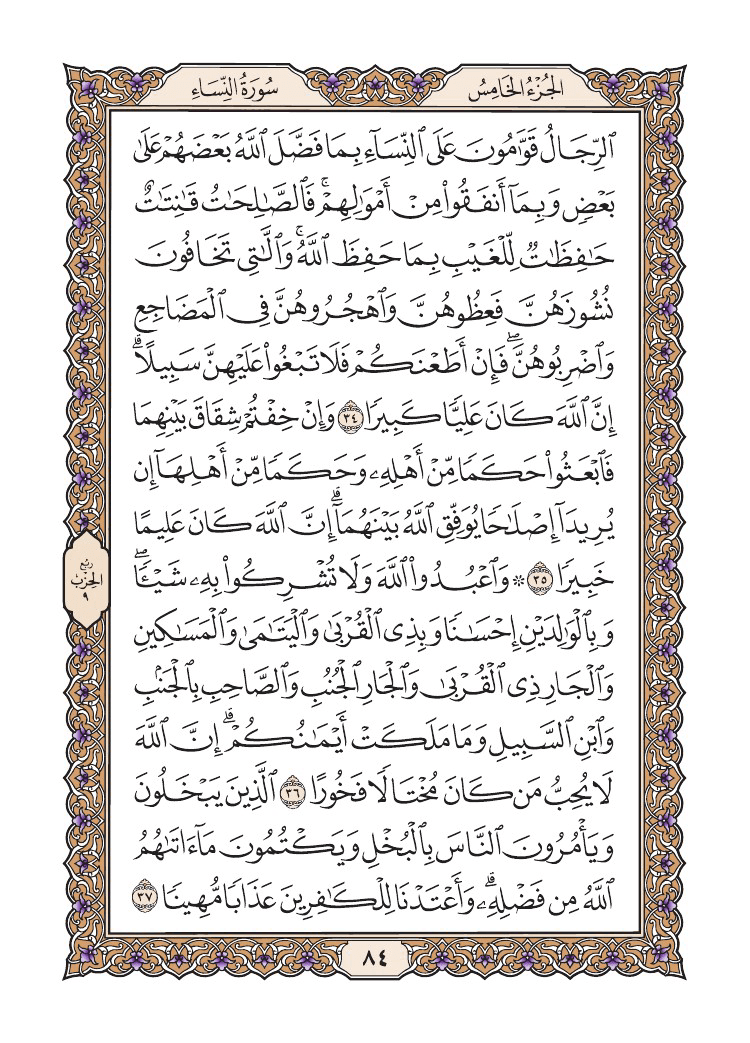 الجُزْءُ الخَامِسُ
سُورَةُ النِّسَاءِ
ٱلرِّجَالُ قَوَّٰمُونَ عَلَى ٱلنِّسَآءِ بِمَا فَضَّلَ ٱللَّهُ بَعْضَهُمْ عَلَىٰ
بَعْضٖ وَبِمَآ أَنفَقُواْ مِنْ أَمْوَٰلِهِمْۚ فَٱلصَّٰلِحَٰتُ قَٰنِتَٰتٌ
حَٰفِظَٰتٞ لِّلْغَيْبِ بِمَا حَفِظَ ٱللَّهُۚ وَٱلَّٰتِي تَخَافُونَ
نُشُوزَهُنَّ فَعِظُوهُنَّ وَٱهْجُرُوهُنَّ فِي ٱلْمَضَاجِعِ
وَٱضْرِبُوهُنَّۖ فَإِنْ أَطَعْنَكُمْ فَلَا تَبْغُواْ عَلَيْهِنَّ سَبِيلًاۗ
إِنَّ ٱللَّهَ كَانَ عَلِيّٗا كَبِيرٗا ٣٤ وَإِنْ خِفْتُمْ شِقَاقَ بَيْنِهِمَا
فَٱبْعَثُواْ حَكَمٗا مِّنْ أَهْلِهِۦ وَحَكَمٗا مِّنْ أَهْلِهَآ إِن
يُرِيدَآ إِصْلَٰحٗا يُوَفِّقِ ٱللَّهُ بَيْنَهُمَآۗ إِنَّ ٱللَّهَ كَانَ عَلِيمًا
خَبِيرٗا ٣٥ ۞ وَٱعْبُدُواْ ٱللَّهَ وَلَا تُشْرِكُواْ بِهِۦ شَيْـٔٗاۖ
وَبِٱلْوَٰلِدَيْنِ إِحْسَٰنٗا وَبِذِي ٱلْقُرْبَىٰ وَٱلْيَتَٰمَىٰ وَٱلْمَسَٰكِينِ
وَٱلْجَارِ ذِي ٱلْقُرْبَىٰ وَٱلْجَارِ ٱلْجُنُبِ وَٱلصَّاحِبِ بِٱلْجَنۢبِ
وَٱبْنِ ٱلسَّبِيلِ وَمَا مَلَكَتْ أَيْمَٰنُكُمْۗ إِنَّ ٱللَّهَ
لَا يُحِبُّ مَن كَانَ مُخْتَالٗا فَخُورًا ٣٦ ٱلَّذِينَ يَبْخَلُونَ
وَيَأْمُرُونَ ٱلنَّاسَ بِٱلْبُخْلِ وَيَكْتُمُونَ مَآ ءَاتَىٰهُمُ
ٱللَّهُ مِن فَضْلِهِۦۗ وَأَعْتَدْنَا لِلْكَٰفِرِينَ عَذَابٗا مُّهِينٗا ٣٧
رُبْعُ
الحِزْبِ
٩
٨٤